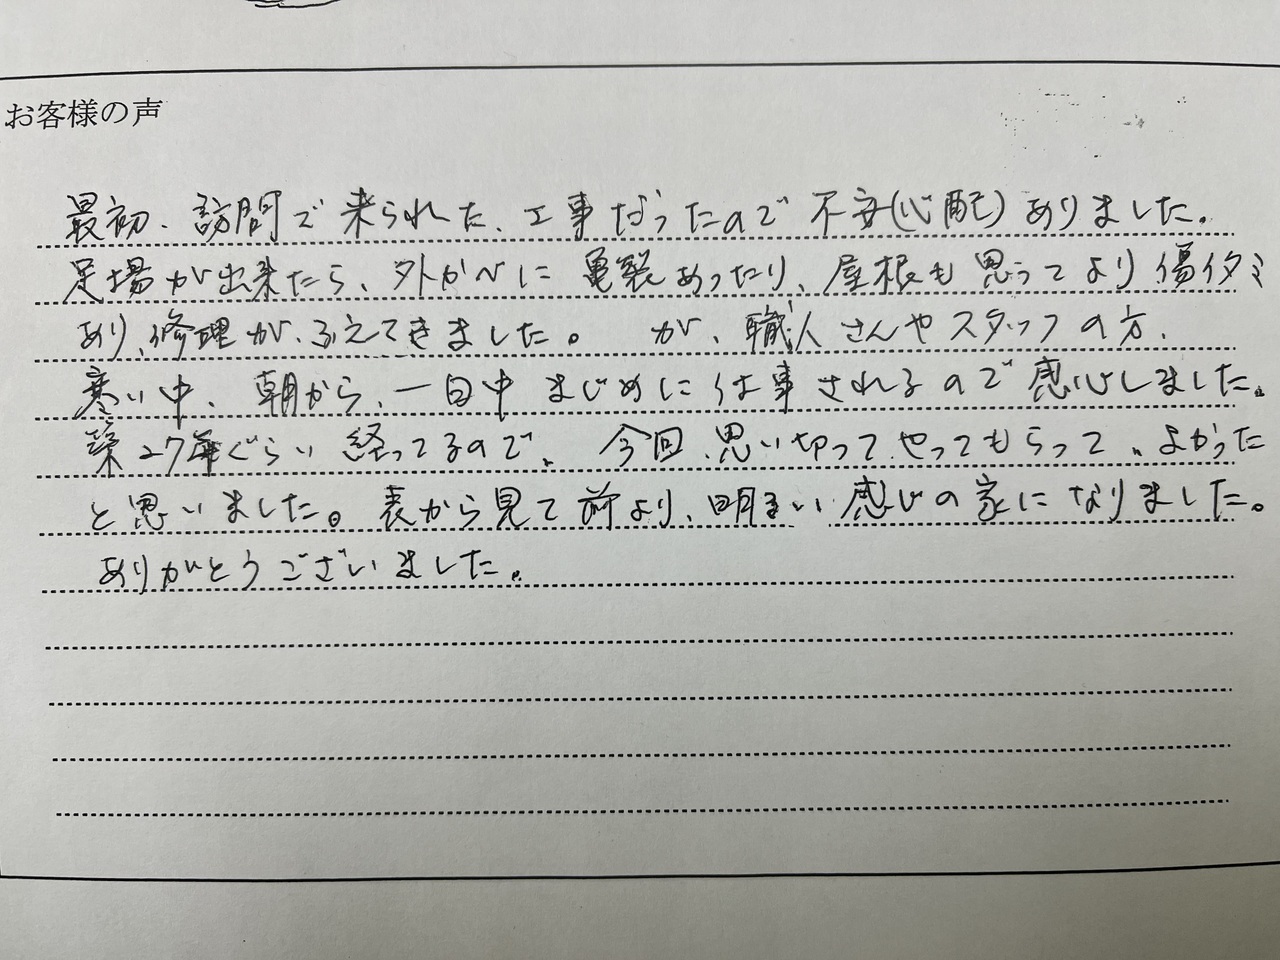 お客様の声
最初、訪問で来られた、工事だったので不安(心配)ありました。
足場が出来たら、外かべに亀裂あったり、屋根も思ってより傷イタミ
あり、修理が、ふえてきました。 が、職人さんやスタッフの方、
寒い中、朝から、一日中まじめに仕事されるので感心しました。
築27年ぐらい経ってるので、今回、思い切って、やってもらって、よかった
と思いました。表から見て前より、明るい感じの家になりました。
ありがとうございました。